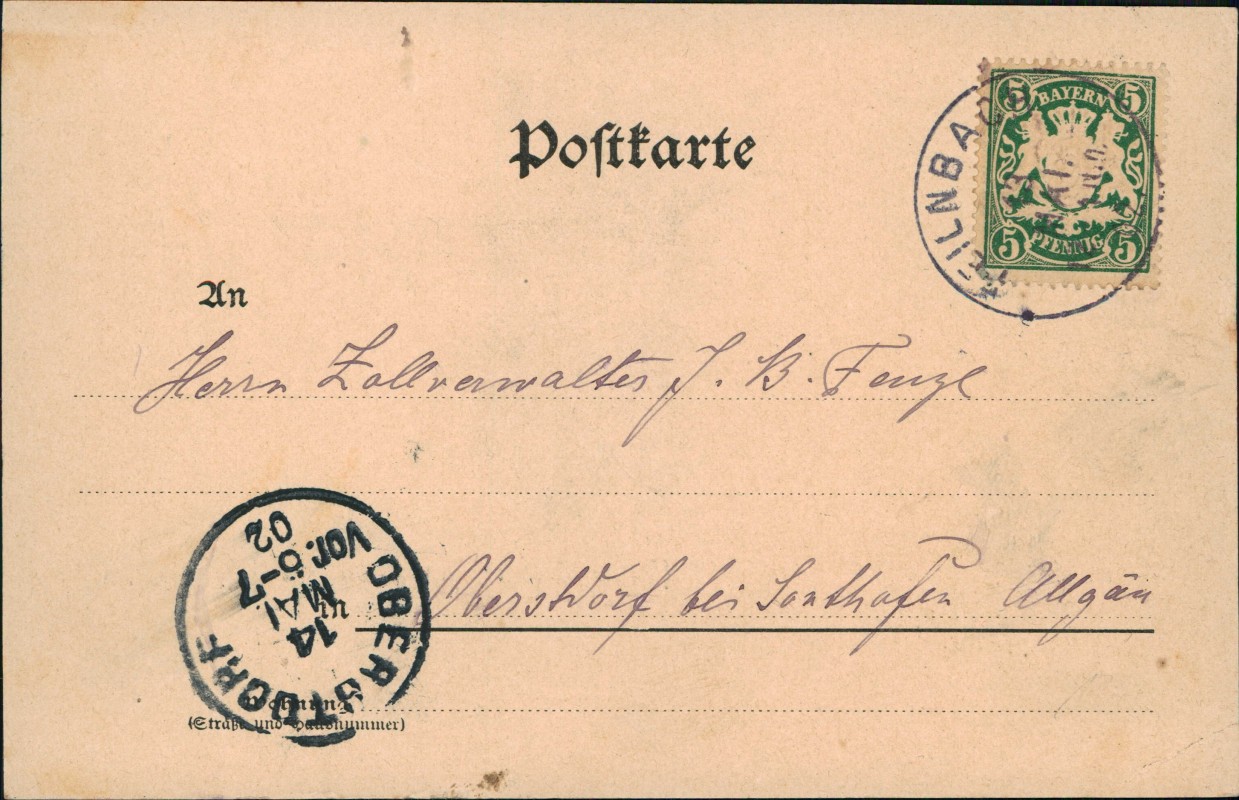 Postkarte
5 BAYERN 5
5 PFENNIG 5
FEILNBACH
13
MAI
An
Herrn Zollverwalter J. B. Fenzl
in Oberstdorf bei Sonthofen Allgäu
OBERSTDORF
14
MAI
Vor. 6-7
02
Wohnung
(Straße und Hausnummer)